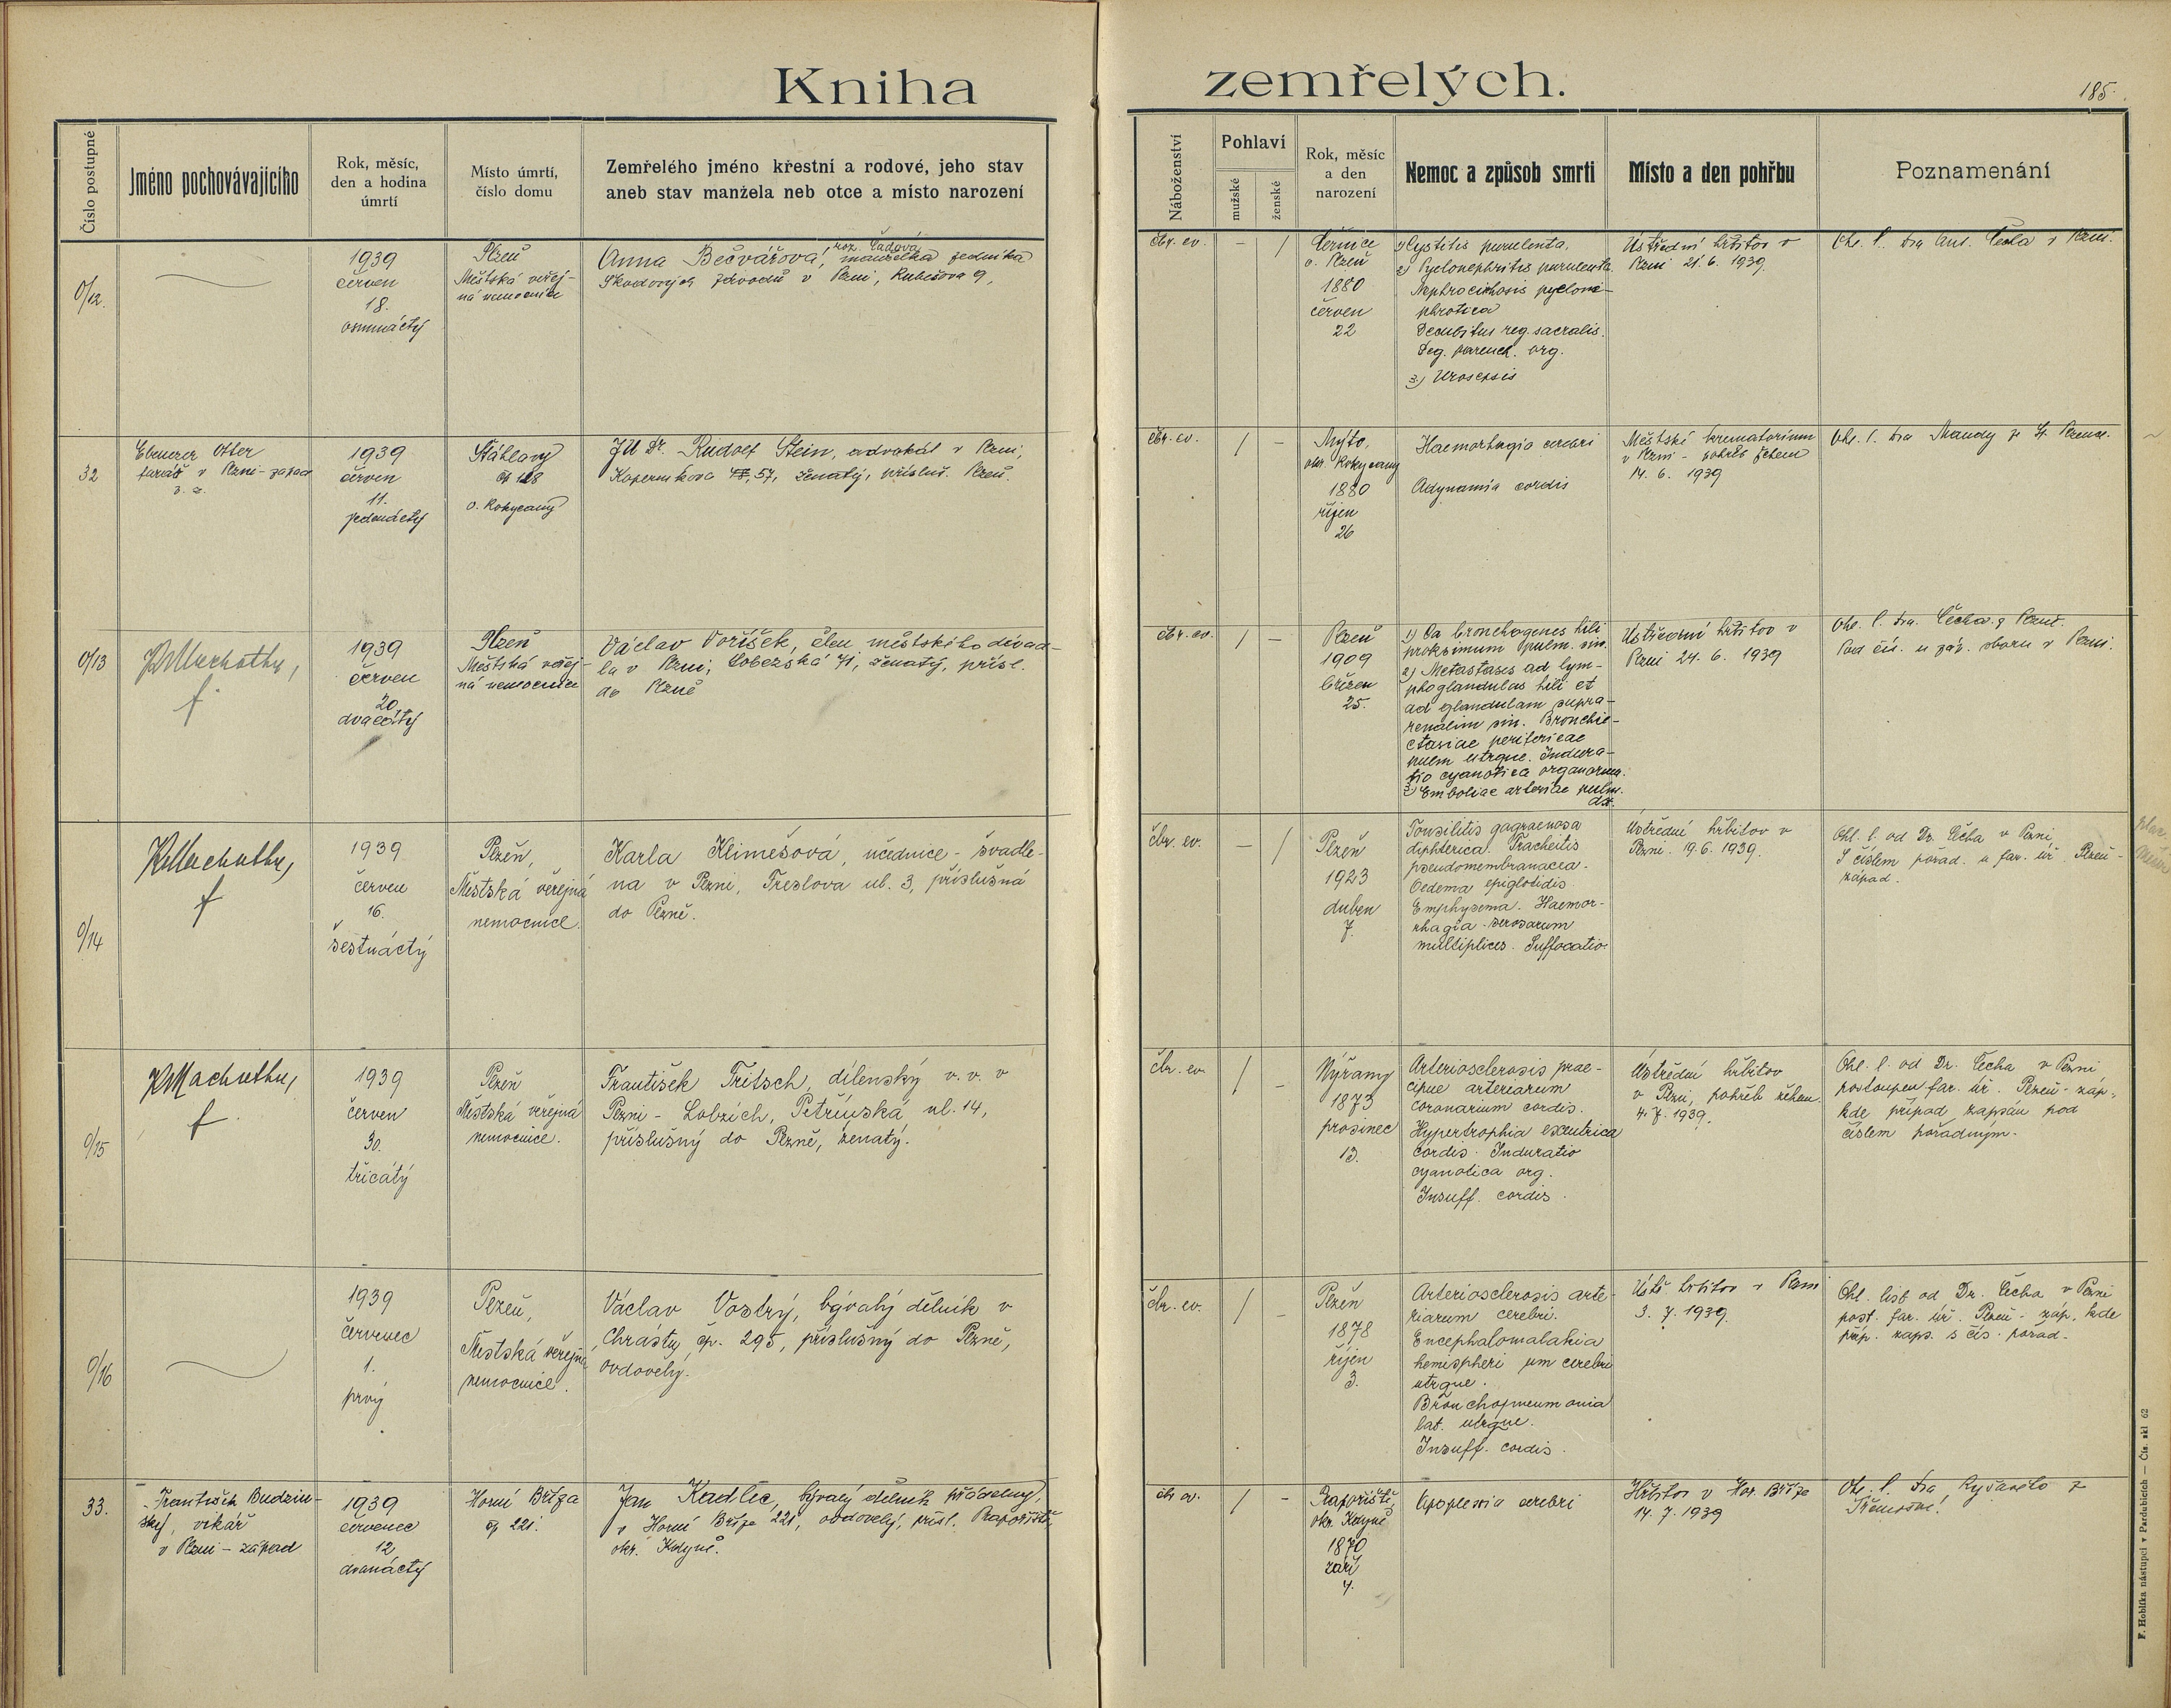 Kniha zemřelých.
185.
Číslo postupné
Jméno pochovávajícího
Rok, měsíc,
den a hodina
úmrtí
Místo úmrtí,
číslo domu
Zemřelého jméno křestní a rodové, jeho stav
aneb stav manžela neb otce a místo narození
Náboženství
Pohlaví
mužské
ženské
Rok, měsíc
a den
narození
Nemoc a způsob smrti
Místo a den pohřbu
Poznamenání
0/12.
1939
červen
18.
osmnáctý
Plzeň
Městská veřej-
ná nemocnice
roz. Čadová
Anna Bečvářová, manželka
Škodových závodů v Plzni, 9,
čbr. ev.
–
/
Černice
o. Plzeň
1880
červen
22
1) Cystitis purulenta.
2) Pyelonephritis purulenta.
Decubitus reg. sacralis.
Deg. parench. org.
3) Urosepsis
Ústřední hřbitov v
Plzni 21. 6. 1939.
Ohl. l. dra Ant. Čecha v Plzni.
32
Ebenezer Otter
farář v Plzni-západ
1939
červen
11.
jedenáctý
Šťáhlavy
o. Rokycany
JU Dr. Rudolf Stein, advokát v Plzni,
Koperníkova 57, ženatý, přísluš. Plzeň.
čbr. ev.
/
–
Mýto,
okr. Rokycany
1880
říjen
26
Haemorhagia cerebri
Adynamia cordis
Městské krematorium
v Plzni - pohřeb žehem
14. 6. 1939
Ohl. l. dra Mandy
0/13
1939
červen
20
dvacátý
Plzeň
Městská veřej-
ná nemocnice
Václav Voříšek, člen městského divad-
la v Plzni, Lobezská 71, ženatý, přísl.
do Plzně
čbr. ev.
/
–
Plzeň
1909
březen
25.
1) Ca bronchogenes hili
proksimum pulm. sin.
2) Metastases ad lym-
phoglandulas hili et
ad glandulam supra-
renalim sin. Bronchie-
ctasiae periferieae
pulm utrque. Indura-
tio cyanotica organorum.
3) Emboliae arteriae pulm.
dx.
Ústřední hřbitov v
Plzni 24. 6. 1939
Ohl. l. dra. Čecha z Plzně.
Pod čís. u záp. sboru v Plzni.
0/14
1939
červen
16.
šestnáctý
Plzeň,
Městská veřejná
nemocnice.
Karla Klimešová, učednice - švadle-
na v Plzni, Treslova ul. 3, příslušná
do Plzně.
čbr. ev.
–
/
Plzeň
1923
duben
7.
Tonsilitis gagraenosa
diphterica. Tracheitis
pseudomembranacea.
Oedema epiglotidis
Emphysema. Haemor-
rhagia serosarum
multiplices. Suffocatio
Ústřední hřbitov v
Plzni. 19. 6. 1939.
Ohl. l. od Dr. Čecha v Plzni,
S číslem pořad. u far. úř. Plzeň-
západ.
0/15
1939
červen
30.
třicátý
Plzeň
Městská veřejná
nemocnice.
František Tritsch, dílenský v. v. v
Plzni - Lobzích, Petřínská ul. 14,
příslušný do Plzně, ženatý.
čbr. ev.
/
–
Nýřany
1873
prosinec
13.
Arteriosclerosis prae-
cipue arteriarum
coronarium cordis.
Hypertrophia excentrica
cordis. Induratio
cyanotica org.
Insuff. cordis.
Ústřední hřbitov
v Plzni, pohřeb žehem
4. 7. 1939.
Ohl. l. od Dr. Čecha v Plzni
postoupen far. úř. Plzeň-záp.,
kde případ zapsán pod
číslem pořadným.
0/16
1939
červenec
1.
prvý
Plzeň,
Městská veřejná
nemocnice.
Václav Vostrý, bývalý dělník v
Chrástu, čp. 295, příslušný do Plzně,
ovdovělý.
čbr. ev.
/
–
Plzeň
1878
říjen
3.
Arteriosclerosis arte-
riarum cerebri.
Encephalomalakia
hemispheri um cerebri
utrque.
Bronchopneumonia
lat. utrque.
Insuff. cordis.
Ústř. hřbitov v Plzni
3. 7. 1939.
Ohl. list od Dr. Čecha v Plzni
post. far. úř. Plzeň-záp. kde
příp. zaps. s čís. pořad.
33.
František Budzin-
ský, vikář
v Plzni - západ
1939
červenec
12
dvanáctý
Horní Bříza
čp 221.
Jan Kadlec, bývalý dělník
v Horní Bříze 221, ovdovělý, přísl.
okr. Kdyně.
/
–
okr. Kdyně
1870
září
Apoplexia cerebri
Hřbitov v Hor. Bříze
14. 7. 1939
F. Hoblíka nástupci v Pardubicích — Čís. skl 62